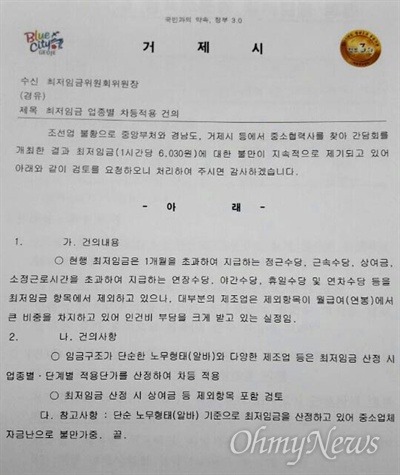 국민과의 약속, 정부 3.0
Blue City 거제
거 제 시
수신 최저임금위원회위원장
(경유)
제목 최저임금 업종별 차등적용 건의
조선업 불황으로 중앙부처와 경남도, 거제시 등에서 중소협력사를 찾아 간담회를
개최한 결과 최저임금(1시간당 6,030원)에 대한 불만이 지속적으로 제기되고 있어
아래와 같이 검토를 요청하오니 처리하여 주시면 감사하겠습니다.
- 아 래 -
1. 가. 건의내용
○ 현행 최저임금은 1개월을 초과하여 지급하는 정근수당, 근속수당, 상여금,
소정근로시간을 초과하여 지급하는 연장수당, 야간수당, 휴일수당 및 연차수당 등을
최저임금 항목에서 제외하고 있으나, 대부분의 제조업은 제외항목이 월급여(연봉)에서
큰 비중을 차지하고 있어 인건비 부담을 크게 받고 있는 실정임.
2. 나. 건의사항
○ 임금구조가 단순한 노무형태(알바)와 다양한 제조업 등은 최저임금 산정 시
업종별·단계별 적용단가를 산정하여 차등 적용
○ 최저임금 산정 시 상여금 등 제외항목 포함 검토
다. 참고사항 : 단순 노무형태(알바) 기준으로 최저임금을 산정하고 있어 중소업체
자금난으로 불만가중. 끝.
OhmyNews